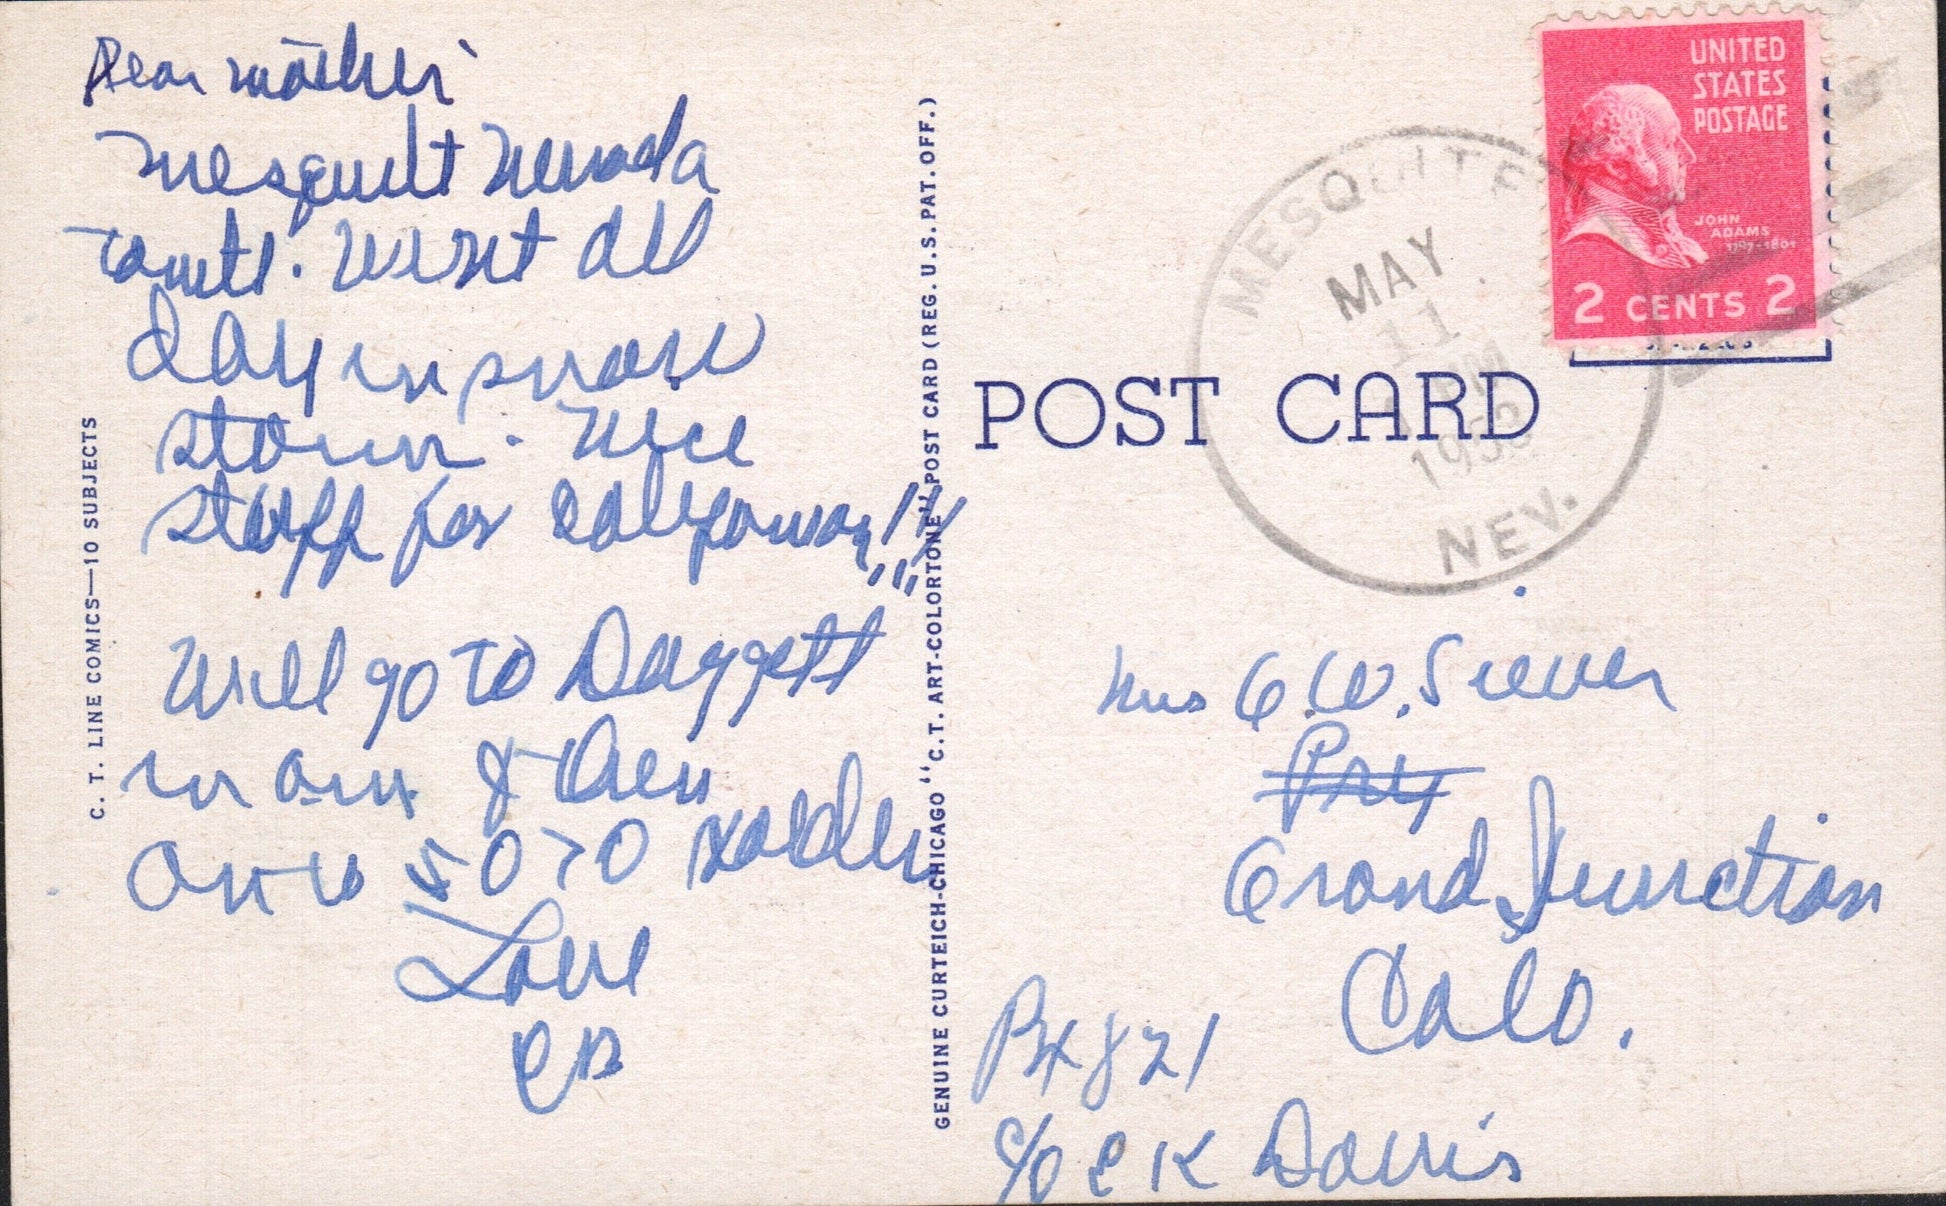 Dear mother
Mesquit Nevada
tonite. Went all
day in snow
storm. Nice
stuff for Californian!!
Will go to Daggett
in am & then
on to
Love
C. T. LINE COMICS—10 SUBJECTS
GENUINE CURTEICH-CHICAGO "C.T. ART-COLORTONE" POST CARD (REG. U.S. PAT. OFF.)
POST CARD
MESQUITE
MAY
11
PM
1953
NEV.
UNITED
STATES
POSTAGE
JOHN
ADAMS
1797-1801
2 CENTS 2
Mrs G.W. Siever
Grand Junction
Colo.
Bx 821
c/o E K Davis